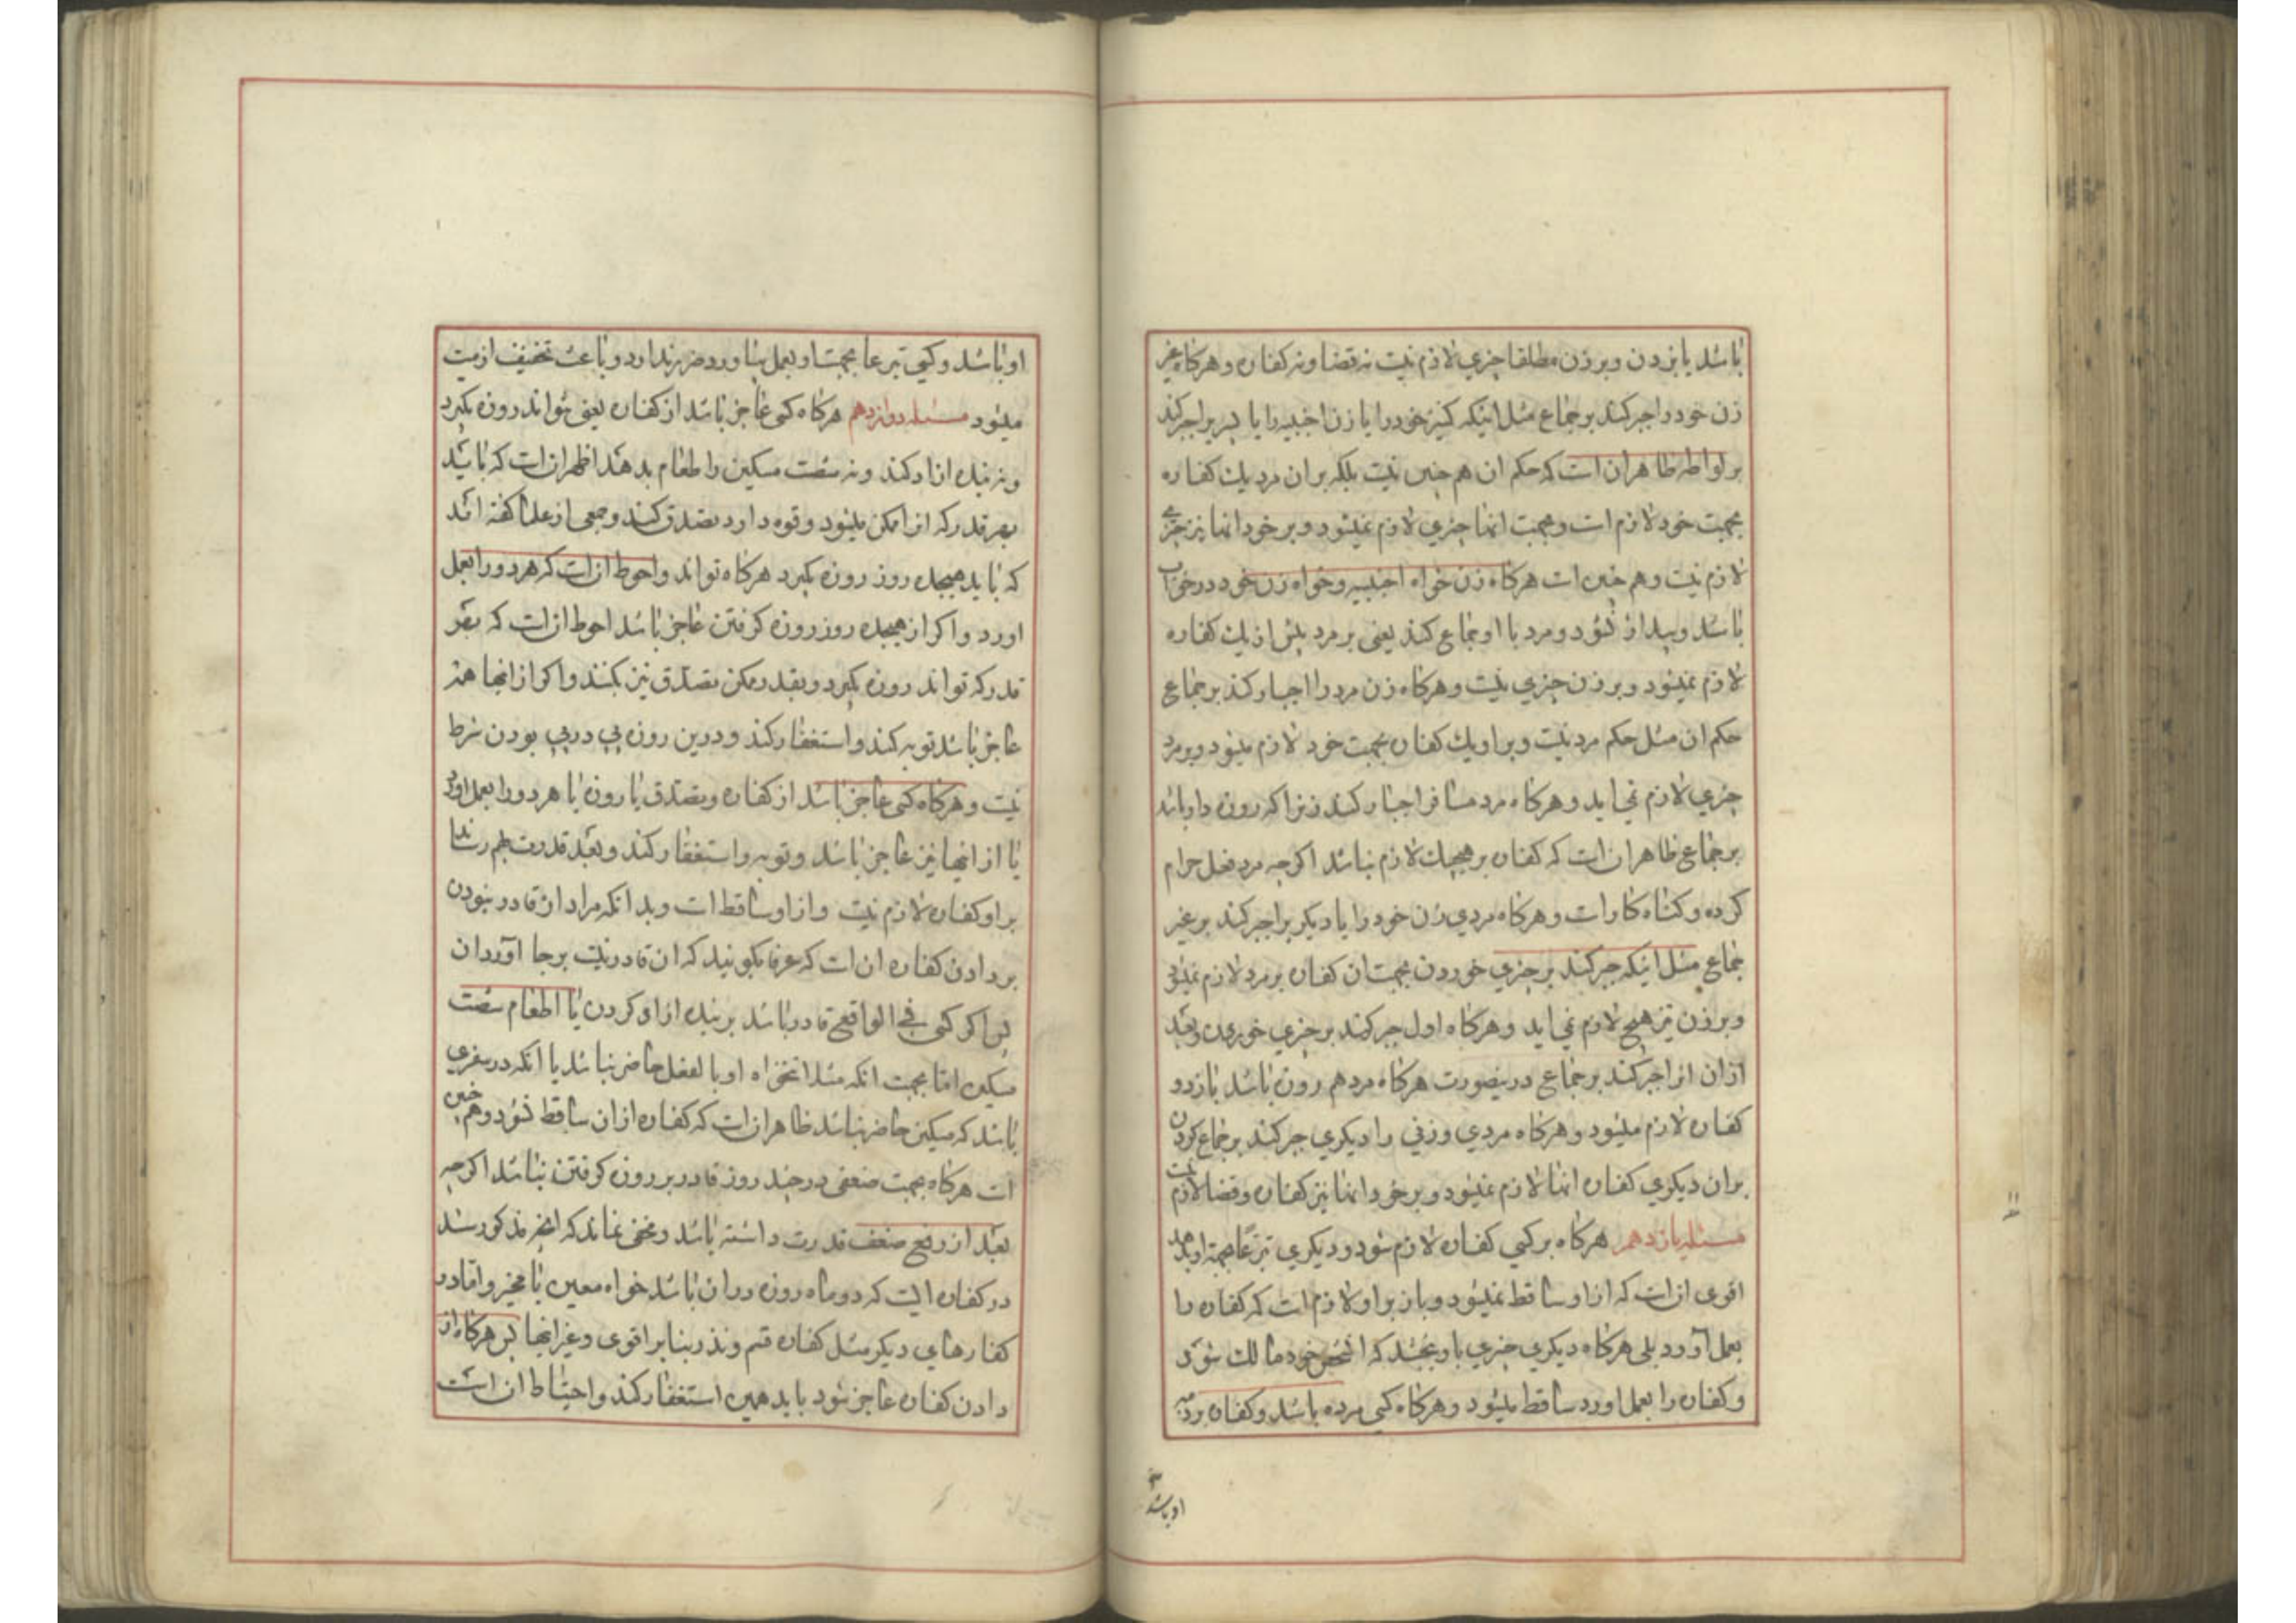 باشد یا بزدن و بر زن مطلقا چیزی لازم نیست نه قضا و نه کفاره و هرکاه غیر
زن خود را جبر کند بر جماع مثل اینکه کنیز خود را یا زن اجنبیه را یا پسریرا جبر کند
بر لواطه ظاهر ان است که حکم ان هم چنین نیست بلکه بر ان مرد یك کفاره
بجهت خود لازم است و بجهت انها چیزی لازم نمیشود و بر خود انها نیز چیزی
لازم نیست و هم چنین است هرکاه زن خواه اجنبیه و خواه زن خود در خواب
باشد و بیدار نشود و مرد با او جماع کند یعنی بر مرد بیش از یك کفاره
لازم نمیشود و بر زن چیزی نیست و هرکاه زن مرد را اجبار کند بر جماع
حکم ان مثل حکم مرد نیست و بر او یك کفاره بجهت خود لازم میشود و بر مرد
چیزی لازم نمی اید و هرکاه مرد مسافر اجبار کند زنرا که روزه دار باشد
بر جماع ظاهر ان است که کفاره بر هیچیك لازم نباشد اکرچه مرد فعل حرام
کرده و کناه کار است و هرکاه مردی زن خود را یا دیکریرا جبر کند بر غیر
جماع مثل اینکه جبر کند بر چیزی خوردن بجهت ان کفاره بر مرد لازم نمیشود
و بر زن نیز هیچ لازم نمی اید و هرکاه اول جبر کند بر چیزی خوردن و بعد
از ان او را جبر کند بر جماع درینصورت هرکاه مرد هم روزه باشد باز دو
کفاره لازم میشود و هرکاه مردی و زنی را دیکری جبر کند بر جماع کردن
بر ان دیکری کفاره انها لازم نمیشود و بر خود انها نیز کفاره و قضا لازم نیست
مسئله یازدهم هرکاه بر کسی کفاره لازم شود و دیکری تبرعا بجهة او بدهد
اقوی ان است که از او ساقط نمیشود و باز بر او لازم است که کفاره را
بعمل آورد بلی هرکاه دیکری چیزی باو بخشد که انشخص خود مالك شود
و کفاره را بعمل اورد ساقط میشود و هرکاه کسی مرده باشد و کفاره بر ذمه
او باشد
او باشد و کسی تبرعا بجهت او بعمل بیاورد ضرر ندارد و باعث تخفیف از میت
میشود مسئله دوازدهم هرکاه کسی عاجز باشد از کفاره یعنی نتواند روزه بکیرد
و نه بنده ازاد کند و نه شصت مسکین را طعام بدهد اظهر ان است که باید
بهر قدر که او را ممکن میشود و قوه دارد تصدق کند و جمعی از علما کفته اند
که باید هیجده روز روزه بکیرد هرکاه تواند و احوط ان است که هر دو را بعمل
اورد و اکر از هیجده روز روزه کرفتن عاجز باشد احوط ان است که بهر
قدر که تواند روزه بکیرد و بقدر ممکن تصدق نیز بکند و اکر از اینها هم
عاجز باشد توبه کند و استغفار کند و درین روزه پی در پی بودن شرط
نیست و هرکاه کسی عاجز باشد از کفاره و تصدق یا روزه یا هر دو را بعمل اورد
یا از اینها نیز عاجز باشد و توبه و استغفار کند و بعد قدرت بهم رساند
بر او کفاره لازم نیست و از او ساقط است و بدانکه مراد از قادر نبودن
بر دادن کفاره ان است که عرفا بکویند که ان قادر نیست بر جا آوردن
پس اکر کسی فی الواقع قادر باشد بر بنده ازاد کردن یا اطعام شصت
مسکین اما بجهت انکه مثلا تنخواه او بالفعل حاضر نباشد یا انکه در سفری
باشد که مسکین حاضر نباشد ظاهر ان است که کفاره از ان ساقط نشود و هم چنین
است هرکاه بجهت ضعفی در چند روز قادر بر روزه کرفتن نباشد اکرچه
بعد از رفع ضعف قدرت داشته باشد و مخفی نماند که انچه مذکور شد
در کفاره ایست که دو ماه روزه در ان باشد خواه معین یا مخیر و اما در
کفارهای دیکر مثل کفاره قسم و نذر بنا بر اقوی و غیر اینها پس هرکاه از
دادن کفاره عاجز شود باید همین استغفار کند و احتیاط ان است